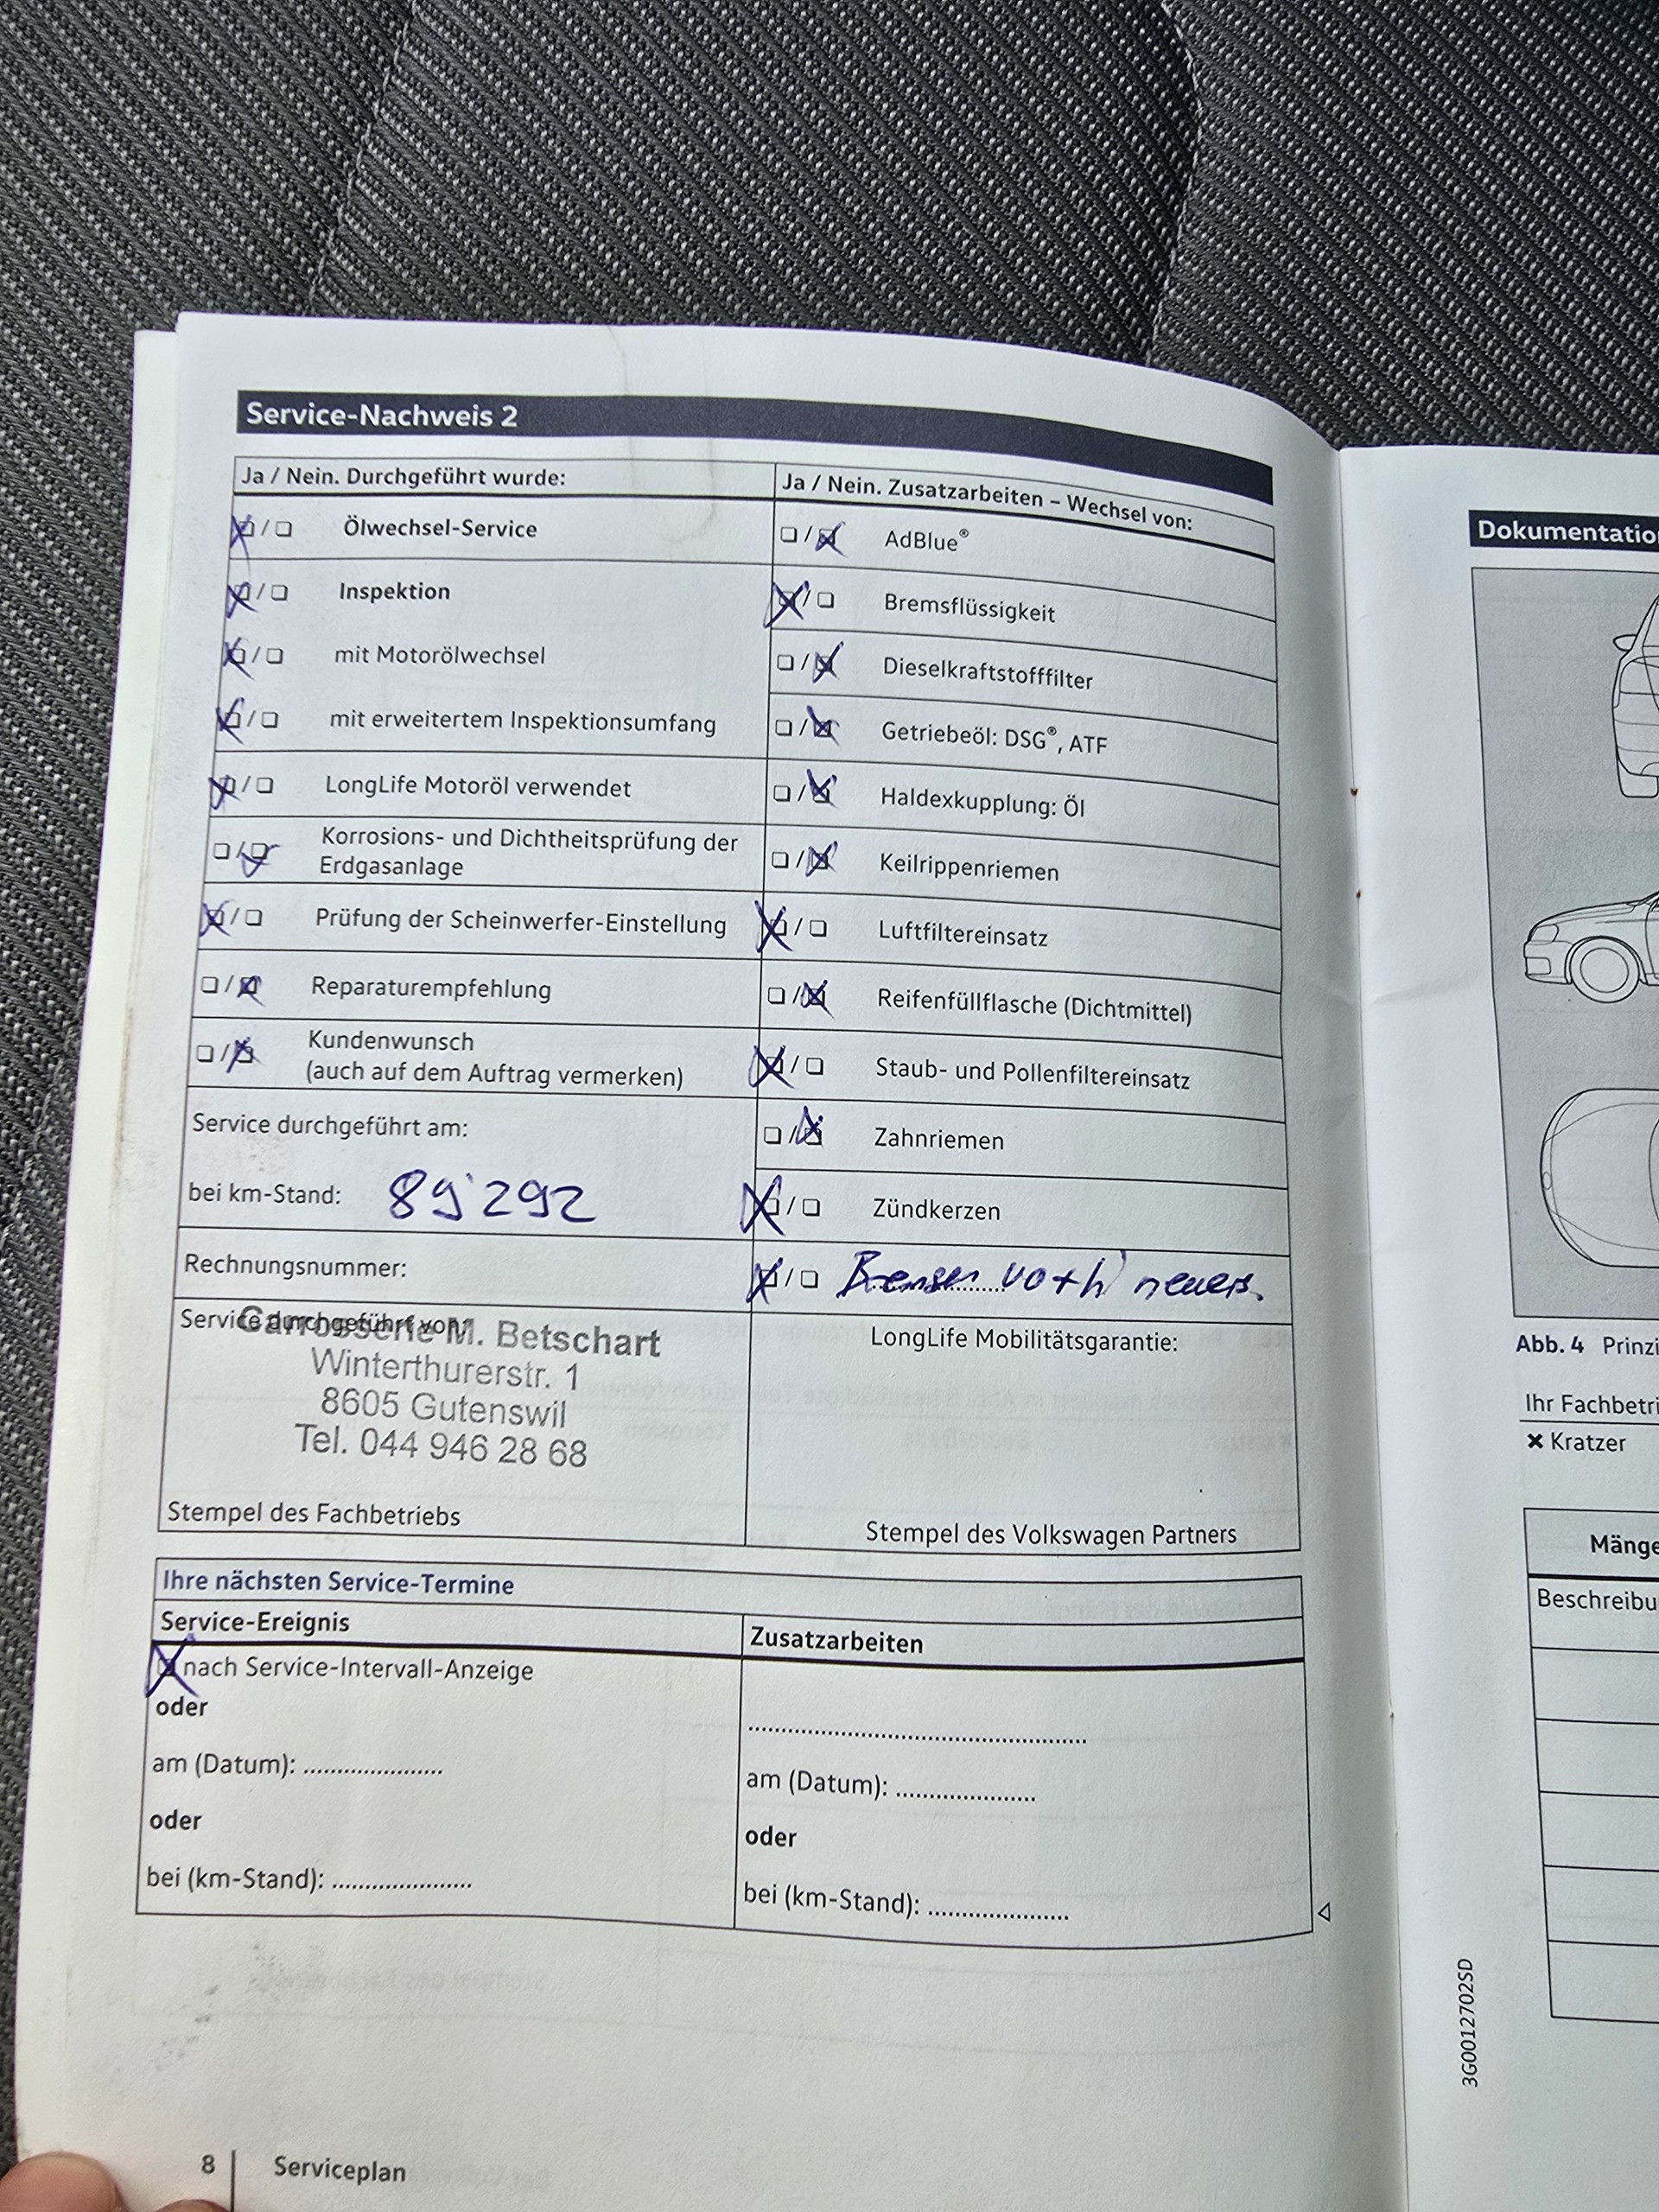 Service-Nachweis 2
Ja / Nein. Durchgeführt wurde:
Ölwechsel-Service
Inspektion
mit Motorölwechsel
mit erweitertem Inspektionsumfang
LongLife Motoröl verwendet
Korrosions- und Dichtheitsprüfung der
Erdgasanlage
Prüfung der Scheinwerfer-Einstellung
Reparaturempfehlung
Kundenwunsch
(auch auf dem Auftrag vermerken)
Service durchgeführt am:
bei km-Stand: 89'292
Rechnungsnummer:
Service durchgeführt von:
Carrosserie M. Betschart
Winterthurerstr. 1
8605 Gutenswil
Tel. 044 946 28 68
Stempel des Fachbetriebs
Ja / Nein. Zusatzarbeiten – Wechsel von:
AdBlue®
Bremsflüssigkeit
Dieselkraftstofffilter
Getriebeöl: DSG®, ATF
Haldexkupplung: Öl
Keilrippenriemen
Luftfiltereinsatz
Reifenfüllflasche (Dichtmittel)
Staub- und Pollenfiltereinsatz
Zahnriemen
Zündkerzen
LongLife Mobilitätsgarantie:
Stempel des Volkswagen Partners
Ihre nächsten Service-Termine
Service-Ereignis
nach Service-Intervall-Anzeige
oder
am (Datum): .....................
oder
bei (km-Stand): .....................
Zusatzarbeiten
am (Datum): .....................
oder
bei (km-Stand): .....................
8 Serviceplan
Dokumentatio
Abb. 4 Prinzi
Ihr Fachbetri
✖ Kratzer
Mänge
Beschreibu
3G0012702SD